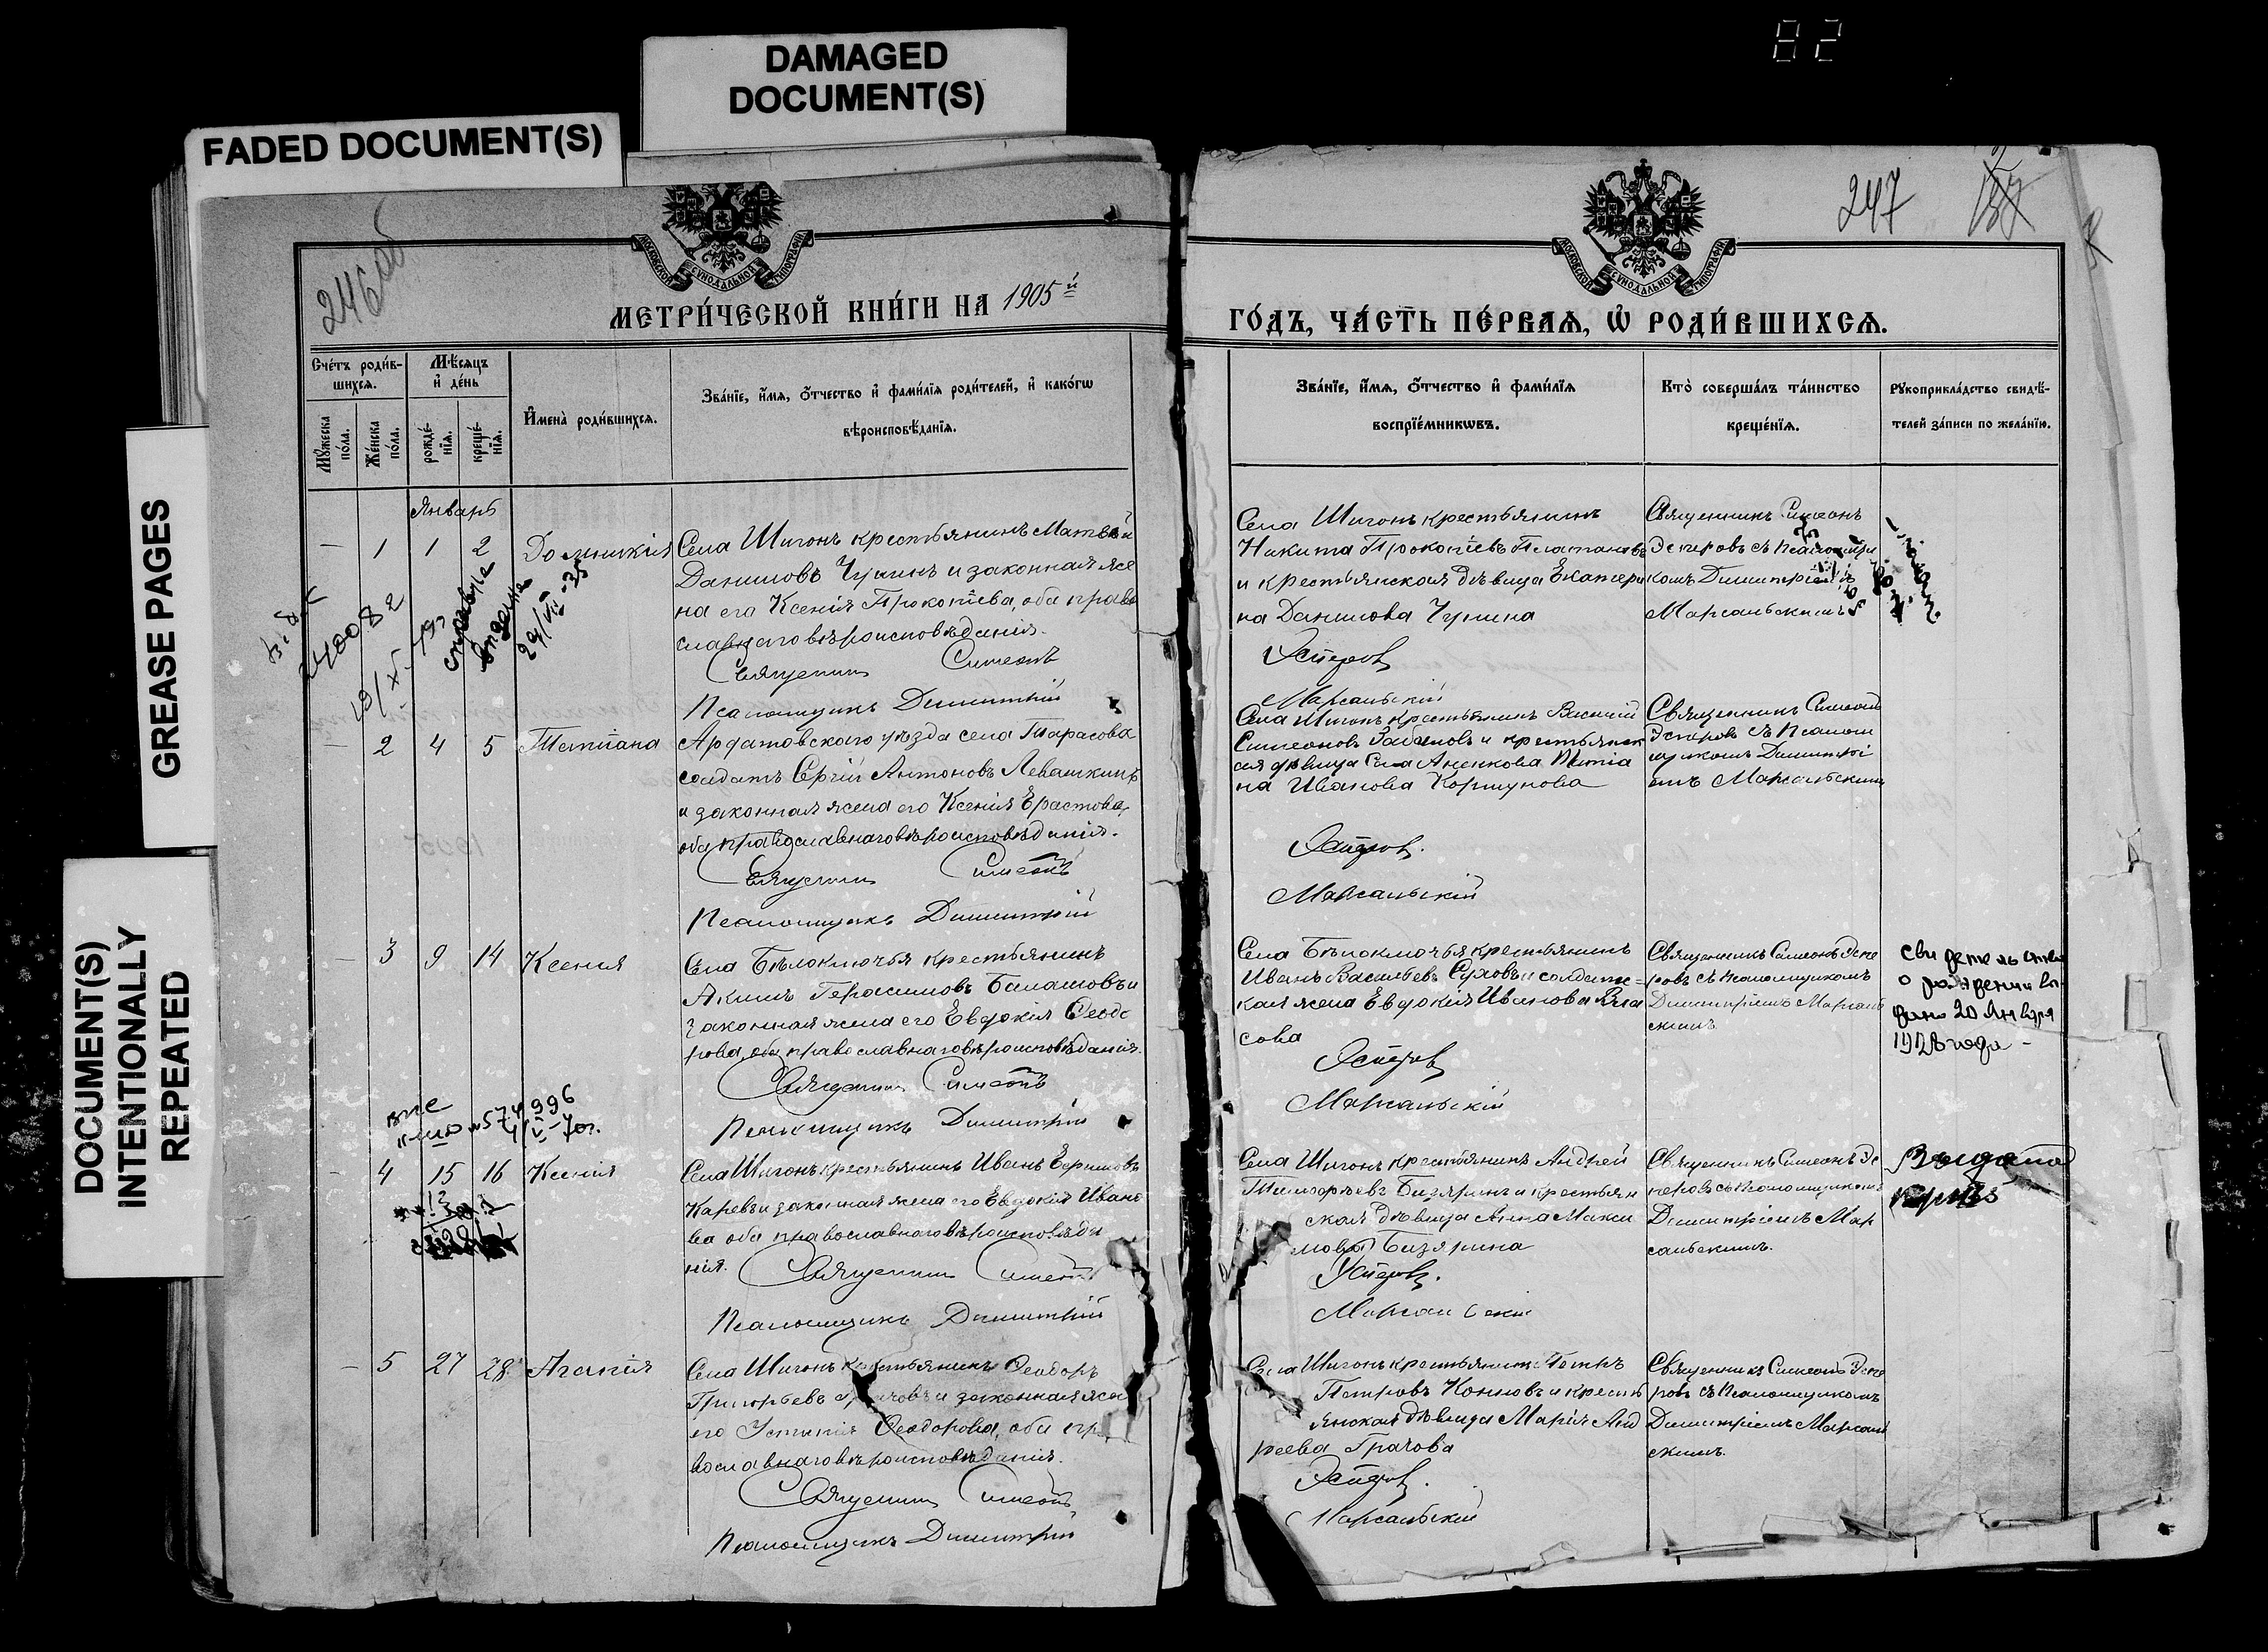 82
DAMAGED
DOCUMENT(S)
FADED DOCUMENT(S)
GREASE PAGES
DOCUMENT(S)
INTENTIONALLY
REPEATED
246 об
247
МОСКОВСКОЙ СѴНОДАЛЬНОЙ ТИПОГРАФІИ
МОСКОВСКОЙ СѴНОДАЛЬНОЙ ТИПОГРАФІИ
МЕТРИ́ЧЕСКОЙ КНИ́ГИ НА 1905й
ГО́ДЪ, ЧА́СТЬ ПЕ́РВАѦ, Ѡ҆ РОДИ́ВШИХСѦ.
Сче́тъ роди́в-
шихсѧ.
Мꙋ́жеска по́ла.
Же́нска по́ла.
Мѣ́сѧцъ
и҆ де́нь
рожде́-
нїѧ.
креще́-
нїѧ.
И҆мена̀ роди́вшихсѧ.
Зва́нїе, и҆́мѧ, ѻ҆́тчество и҆ фами́лїѧ роди́телей, и҆ како́гѡ
вѣроисповѣ́данїѧ.
Зва́нїе, и҆́мѧ, ѻ҆́тчество и҆ фами́лїѧ
воспрїе́мникѡвъ.
Кто̀ соверша́лъ та́инство
креще́нїѧ.
Рꙋкоприкла́дство свидѣ́-
телей за́писи по жела́нїю.
Январь
— 1 1 2 Домникія
Села Шигонъ крестьянинъ Матвѣй
Даниловъ Чупинъ и законная же
на его Ксенія Прокопіева, оба право
славнаго вѣроисповѣданія.
Священникъ Симеонъ
Псаломщикъ Димитрій
Села Шигонъ крестьянинъ
Никита Прокопіевъ Платоновъ
и крестьянская дѣвица Екатери
на Данилова Чупина
Эсперовъ
Марсальскій
Священникъ Симеонъ
Эсперовъ съ псаломщи
комъ Димитріемъ
Марсальскимъ
240082
справка
выдана
29/VII-35
— 2 4 5 Татіана
Ардатовскаго уѣзда села Тарасова
солдатъ Сергій Антоновъ Левашкинъ
и законная жена его Ксенія Ерастова,
оба православнаго вѣроисповѣданія.
Священникъ Симеонъ
Псаломщикъ Димитрій
Села Шигонъ крестьянинъ Василій
Симеоновъ и крестьянск
ая дѣвица Села Аненкова
на Иванова Коршунова
Эсперовъ.
Марсальскій
Священникъ Симеонъ
Эсперовъ съ Псалом
щикомъ Димитрі
емъ Марсальскимъ
— 3 9 14 Ксенія
Села Бѣлоключья крестьянинъ
Акимъ Герасимовъ Балашовъ и
законная жена его Евдокія Ѳеодо
рова, оба православнаго вѣроисповѣданія.
Священникъ Симеонъ
Псаломщикъ Димитрій
Села Бѣлоключья крестьянинъ
Иванъ Васильевъ Суховъ и солдатс=
кая жена Евдокія Иванова Вла
сова
Эсперовъ
Марсальскій
Священникъ Симеонъ Эспе
ровъ съ псаломщикомъ
Димитріемъ Марсаль
скимъ
свидетельство
о рождении вы
дано 20 Января
1928 года -
574996
- 4 15 16 Ксенія
Села Шигонъ крестьянинъ Иванъ Ефимовъ
Каревъ и законная жена его Евдокія Ивано
ва оба православнаго вѣроисповѣда
нія.
Священникъ Симеонъ
Псаломщикъ Димитрій
Села Шигонъ крестьянинъ Андрей
Тимоѳеевъ Бизяринъ и крестьян
ская дѣвица Анна Макси
мова Бизярина
Эсперовъ.
Марсальскій
Священникъ Симеонъ Эс
перовъ съ псаломщикомъ
Димитріемъ Мар
сальскимъ.
Выдана
— 5 27 28 Агапія
Села Шигонъ крестьянинъ Ѳеодоръ
Григорьевъ и законная жена
его Устинія Ѳеодорова, оба пра
вославнаго вѣроисповѣданія.
Священникъ Симеонъ
Псаломщикъ Димитрій
Села Шигонъ крестьянинъ Петръ
Петровъ Конновъ и кресть
янская дѣвица Марія Анд
реева Грачова
Эсперовъ.
Марсальскій
Священникъ Симеонъ Эспе
ровъ съ Псаломщикомъ
Димитріемъ Марсаль
скимъ.